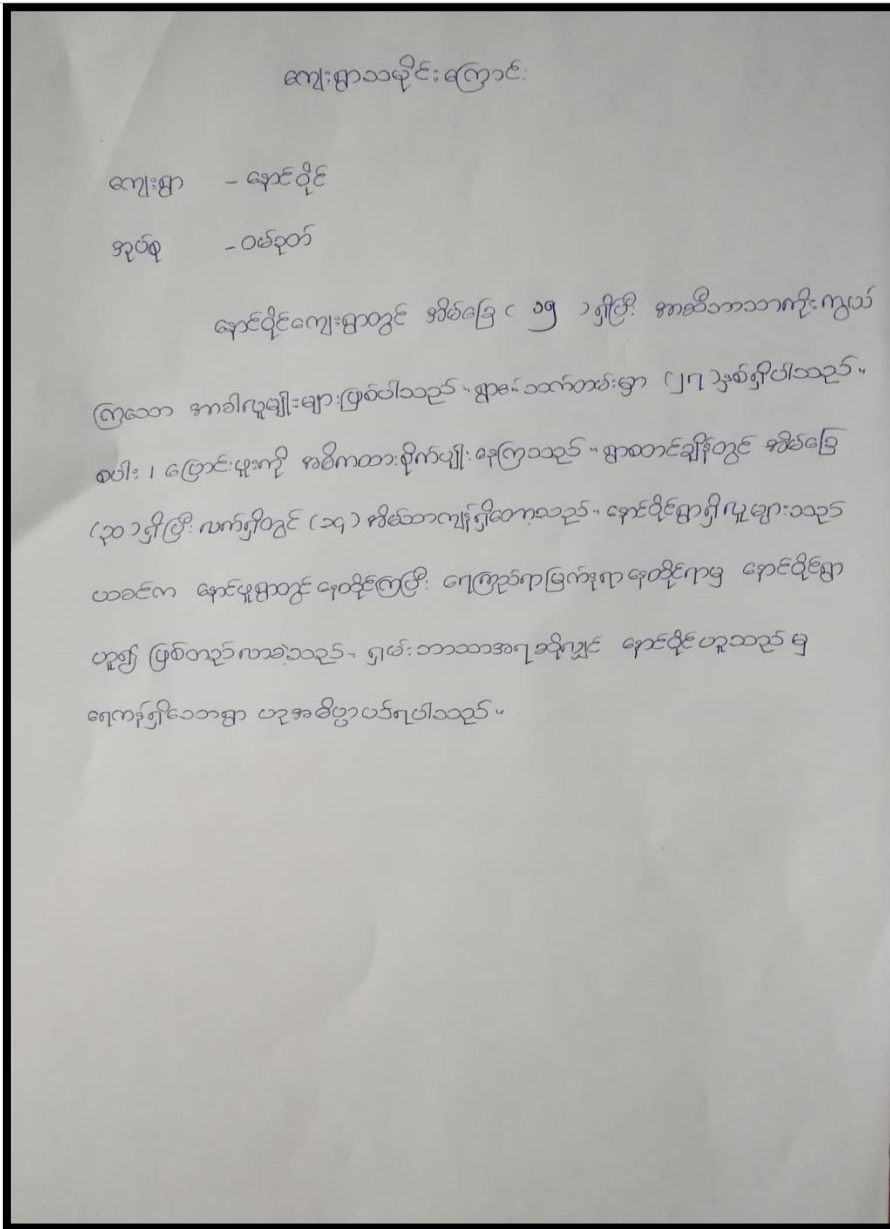 ကျေးရွာသမိုင်းကြောင်း
ကျေးရွာ - နောင်ဝိုင်
အုပ်စု - ဝမ်ဒုတ်
နောင်ဝိုင်ကျေးရွာတွင် အိမ်ခြေ ( ၁၅ ) ရှိပြီး အာဆီဘာသာကိုးကွယ်
ကြသော အာခါလူမျိုးများဖြစ်ပါသည်။ ရွာ၏ သက်တမ်းမှာ (၂၇) နှစ်ရှိပါသည်။
စပါး ၊ ပြောင်းဖူးကို အဓိကထားစိုက်ပျိုးနေကြသည်။ ရွာစတင်ချိန်တွင် အိမ်ခြေ
(၃၀) ရှိပြီး လက်ရှိတွင် (၁၅) အိမ်သာကျန်ရှိတော့သည်။ နောင်ဝိုင်ရွာရှိလူများသည်
ယခင်က နောင်ပူရွာတွင် နေထိုင်ကြပြီး ရေကြည်ရာမြက်နုရာ နေထိုင်ရာမှ နောင်ဝိုင်ရွာ
ဟူ၍ ဖြစ်တည်လာခဲ့သည်။ ရှမ်းဘာသာအရဆိုလျှင် နောင်ဝိုင်ဟူသည်မှ
ရေကန်ရှိသောရွာ ဟုအဓိပ္ပာယ်ရပါသည်။